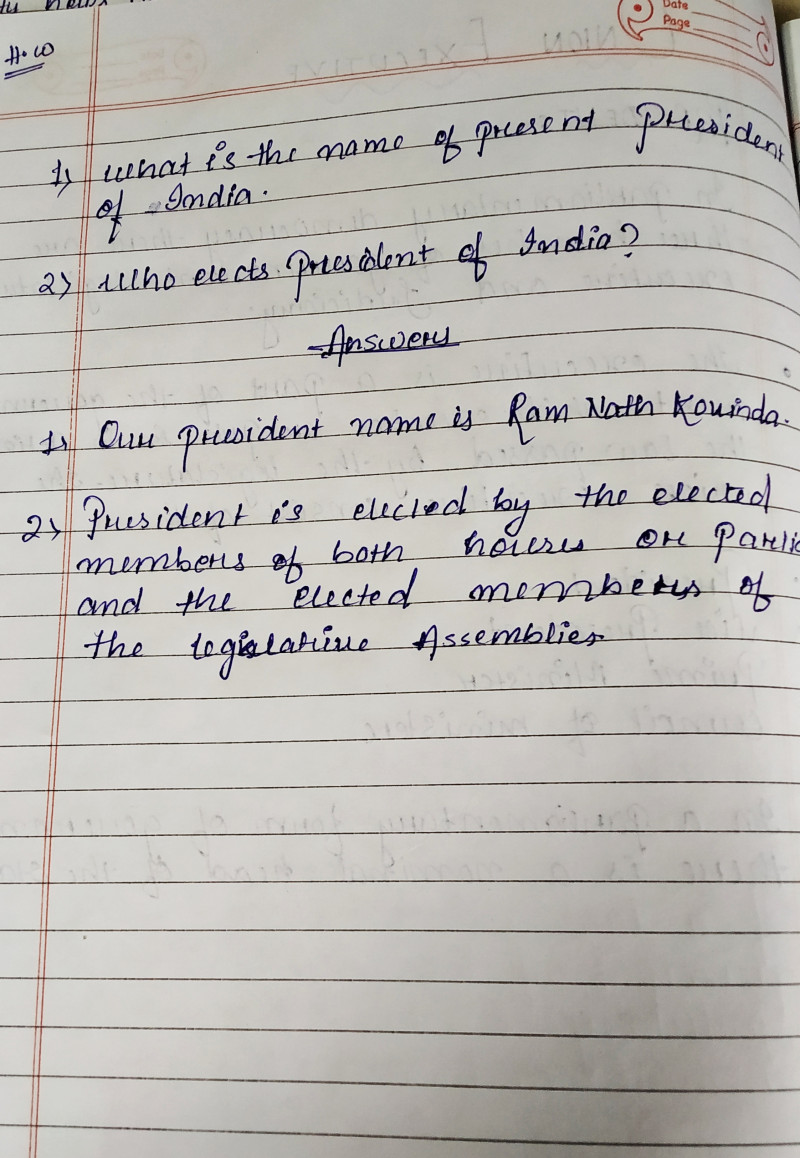 Date
Page
H.W
1) What is the name of present President
of India.
2) Who elects President of India?
Answers
1) Our president name is Ram Nath Kovinda.
2) President is elected by the elected
members of both houses or Parli
and the elected members of
the legislative Assemblies